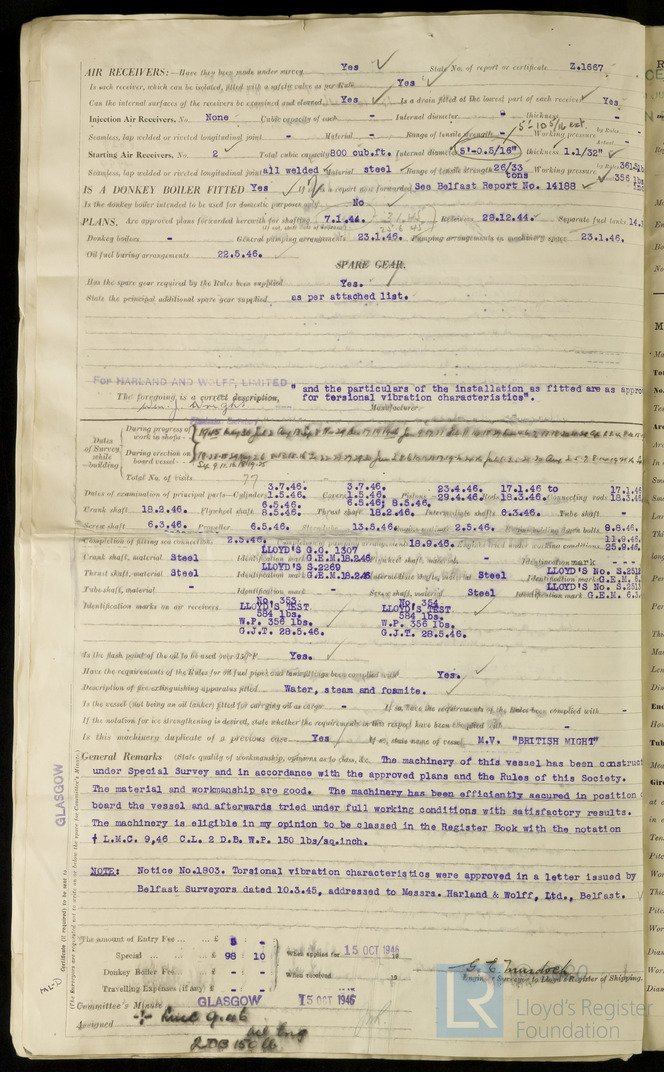 AIR RECEIVERS:—Have they been made under survey Yes State No. of report or certificate Z.1667
Is each receiver, which can be isolated, fitted with a safety valve as per Rule Yes
Can the internal surfaces of the receivers be examined and cleaned Yes Is a drain fitted at the lowest part of each receiver Yes
Injection Air Receivers, No. None Cubic capacity of each - Internal diameter - thickness
5'-10 5/16 ext.
Seamless, lap welded or riveted longitudinal joint - Material - Range of tensile strength - Working pressure by Rules Actual
Starting Air Receivers, No. 2 Total cubic capacity 800 cub.ft. Internal diameter 5'-0.5/16" thickness 1.1/32"
Seamless, lap welded or riveted longitudinal joint all welded Material steel Range of tensile strength 26/33 tons Working pressure by Rules Actual 356 lbs
IS A DONKEY BOILER FITTED Yes If so, is a report now forwarded See Belfast Report No. 14188
Is the donkey boiler intended to be used for domestic purposes only No
PLANS. Are approved plans forwarded herewith for shafting 7.1.44. Receivers 28.12.44. Separate fuel tanks 14.
Donkey boilers - General pumping arrangements 23.1.46. Pumping arrangements in machinery space 23.1.46.
Oil fuel burning arrangements 22.5.46.
SPARE GEAR.
Has the spare gear required by the Rules been supplied Yes.
State the principal additional spare gear supplied as per attached list.
For HARLAND AND WOLFF, LIMITED
" and the particulars of the installation as fitted are as appro
The foregoing is a correct description, for torsional vibration characteristics".
Manufacturer
Dates of Survey while building
During progress of work in shops - -
During erection on board vessel - - -
Total No. of visits 77
3.7.46. 3.7.46. 23.4.46. 17.1.46 to 17.1.4
Dates of examination of principal parts—Cylinders 1.5.46. Covers 1.5.46. Pistons 29.4.46. Rods 18.3.46. Connecting rods 18.3.46.
6.5.46. 6.5.46. 8.5.46.
Crank shaft 18.2.46. Flywheel shaft 8.5.46. Thrust shaft 18.2.46. Intermediate shafts 6.3.46. Tube shaft -
Screw shaft 6.3.46. Propeller 6.5.46. Stern tube 13.5.46. Engine seatings 2.5.46. Engine holding down bolts 8.8.46.
11.9.46.
Completion of fitting sea connections 2.5.46. Completion of pumping arrangements 18.9.46. Engines tried under working conditions 25.9.46.
LLOYD'S G.O. 1307
Crank shaft, material Steel Identification mark G.E.M.18.2.46 Flywheel shaft, material - Identification mark - - -
LLOYD'S S.2269 LLOYD'S No. S.251
Thrust shaft, material Steel Identification mark G.E.M.18.2.46 Intermediate shafts, material Steel Identification marks G.E.M. 6.
LLOYD'S No. S.251
Tube shaft, material - Identification mark - Screw shaft, material Steel Identification mark G.E.M. 6.3.
No. 353. No. 354.
Identification marks on air receivers LLOYD'S TEST LLOYD'S TEST
584 lbs. 584 lbs.
W.P. 356 lbs. W.P. 356 lbs.
G.J.T. 28.5.46. G.J.T. 28.5.46.
Is the flash point of the oil to be used over 150°F Yes.
Have the requirements of the Rules for oil fuel pipes and tank fittings been complied with Yes.
Description of fire extinguishing apparatus fitted Water, steam and foamite.
Is the vessel (not being an oil tanker) fitted for carrying oil as cargo - If so, have the requirements of the Rules been complied with -
If the notation for ice strengthening is desired, state whether the requirements in this respect have been complied with -
Is this machinery duplicate of a previous case Yes If so, state name of vessel M.V. "BRITISH MIGHT"
General Remarks (State quality of workmanship, opinions as to class, &c. The machinery of this vessel has been construct
under Special Survey and in accordance with the approved plans and the Rules of this Society.
The material and workmanship are good. The machinery has been efficiently secured in position o
board the vessel and afterwards tried under full working conditions with satisfactory results.
The machinery is eligible in my opinion to be classed in the Register Book with the notation
✝ L.M.C. 9,46 C.L. 2 D.B. W.P. 150 lbs/sq.inch.
NOTE: Notice No.1803. Torsional vibration characteristics were approved in a letter issued by
Belfast Surveyors dated 10.3.45, addressed to Messrs. Harland & Wolff, Ltd., Belfast.
The amount of Entry Fee ... £ - : -
Special ... £ 98 : 10
Donkey Boiler Fee ... £ - : -
Travelling Expenses (if any) £ - : -
When applied for 15 OCT 1946 19
When received 19
G. E. Murdoch
Engineer Surveyor to Lloyd's Register of Shipping.
Committee's Minute GLASGOW 15 OCT 1946
Assigned + LMC 9.46
Oil Eng
2DB 150 lb
GLASGOW
Certificate (if required) to be sent to
(The Surveyors are requested not to write on or below the space for Committee's Minute.)
LR
Lloyd's Register
Foundation